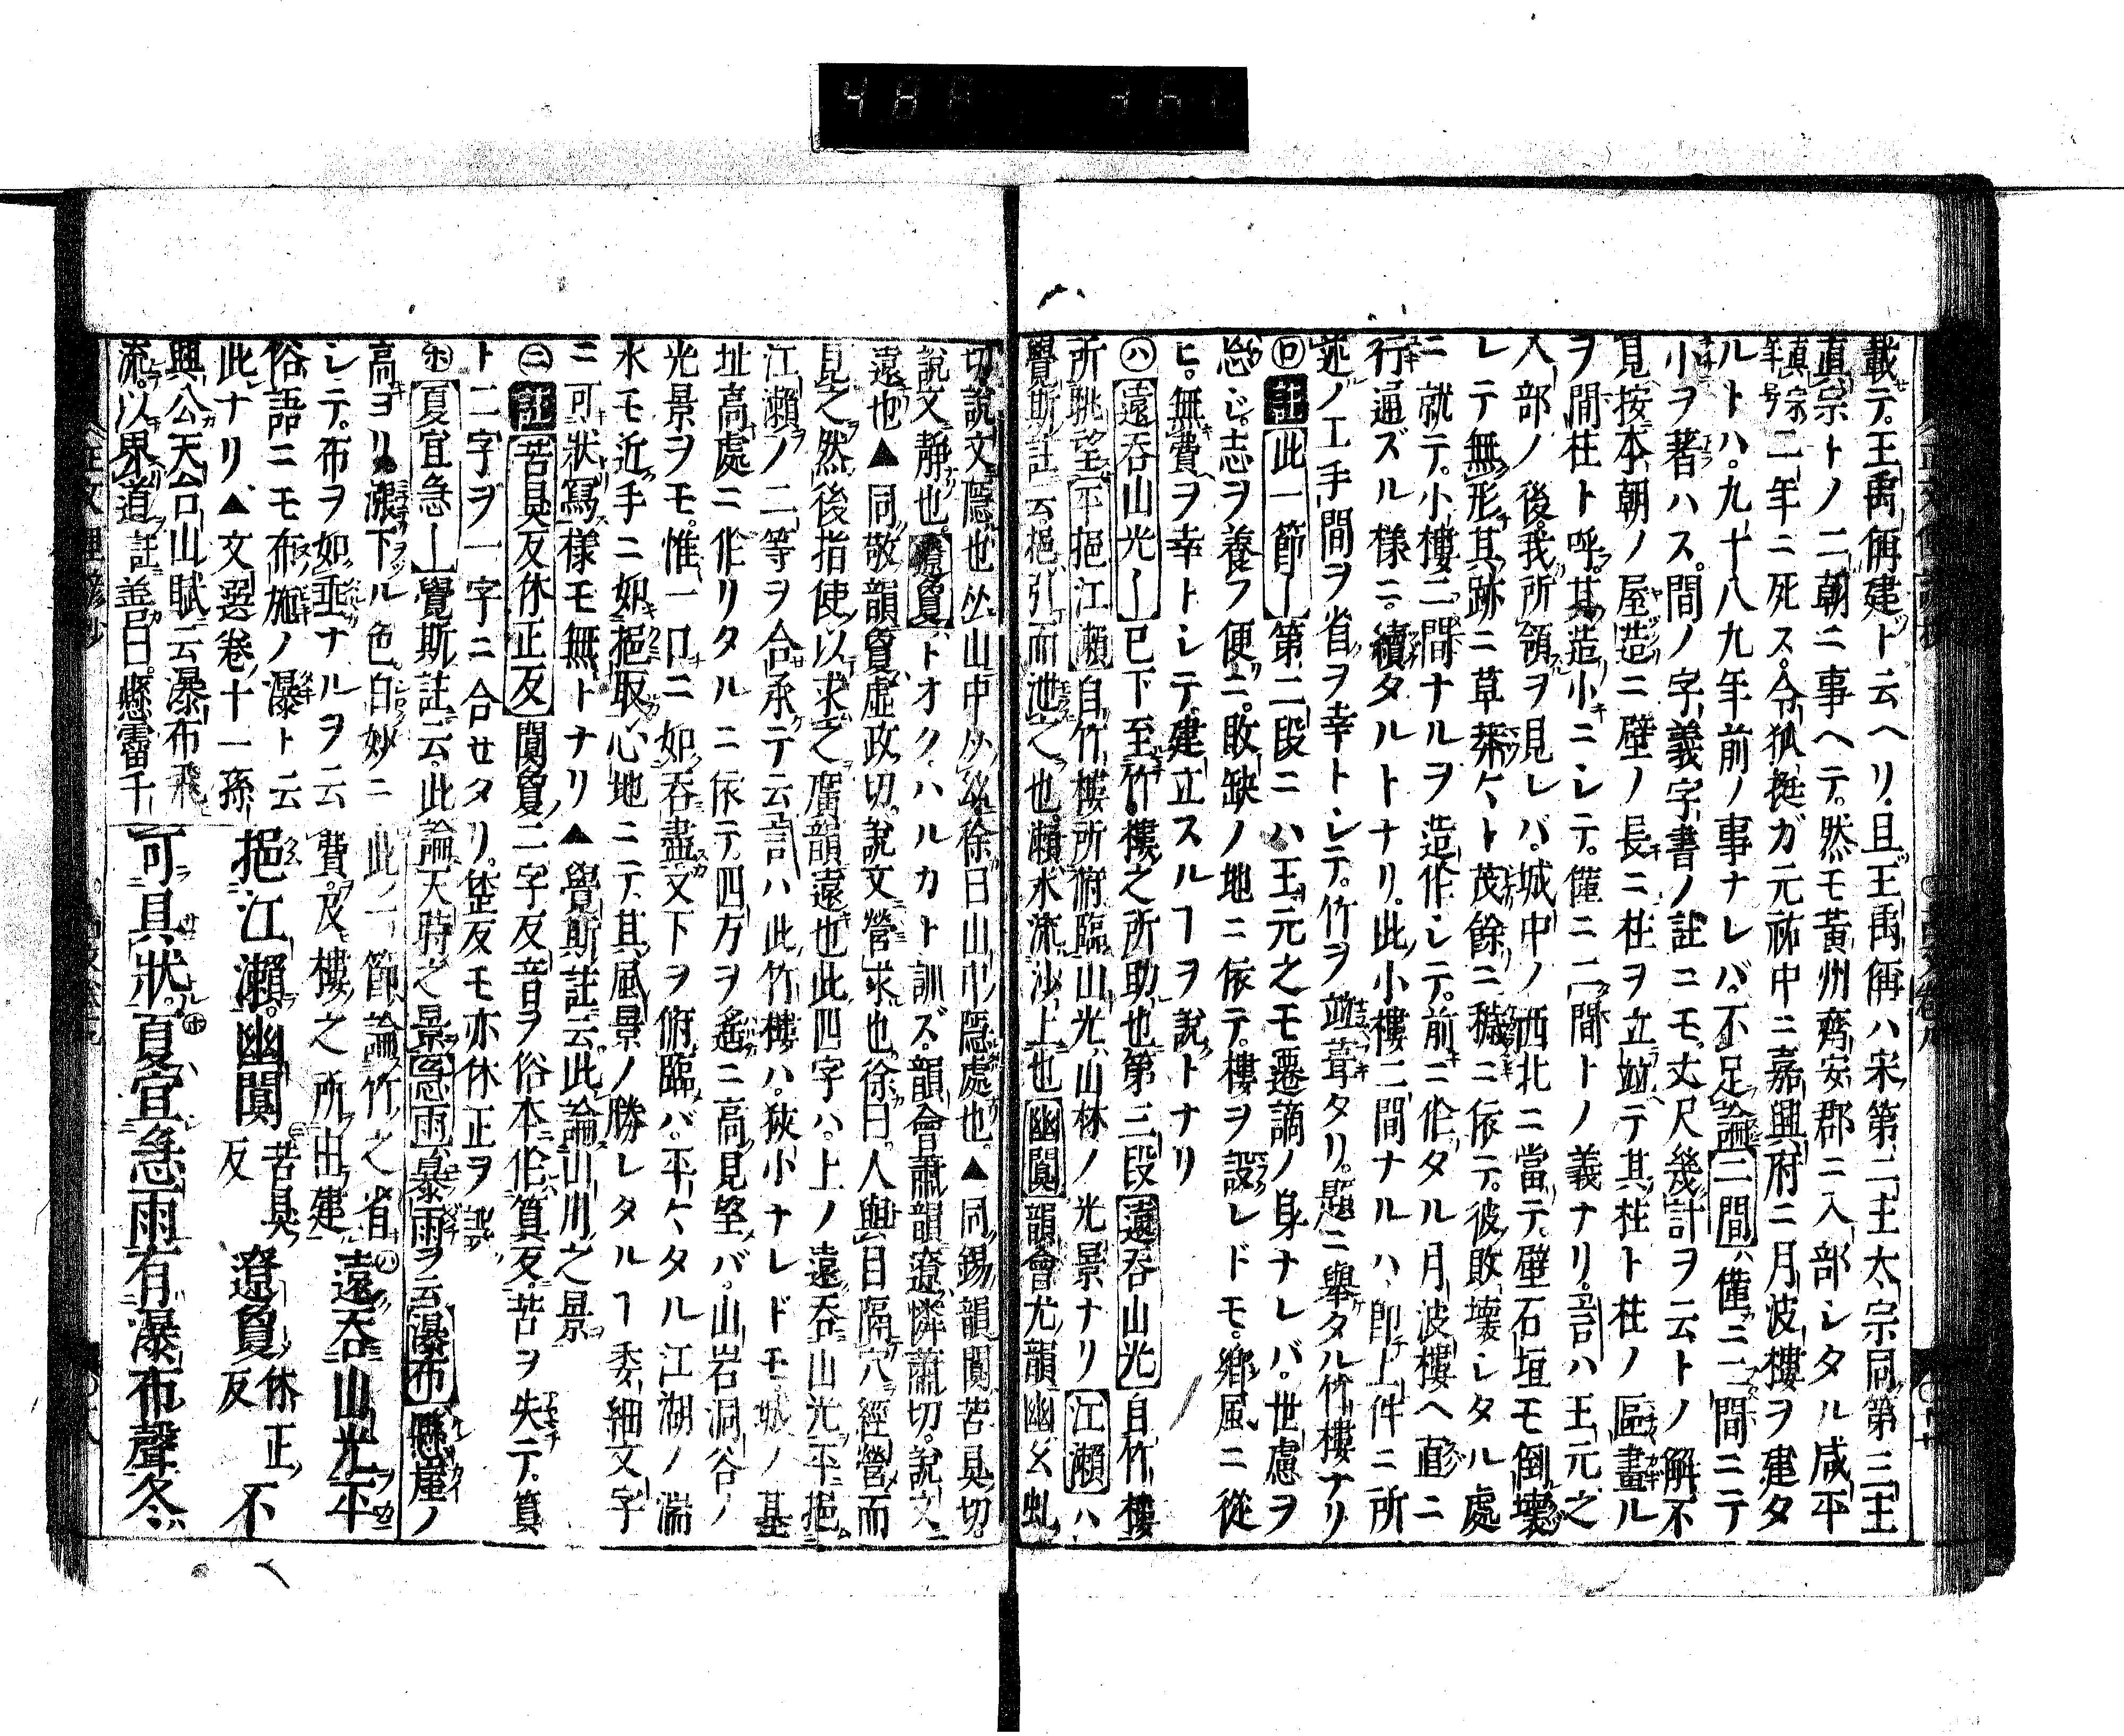 載テ。王禹偁建ト云ヘリ。且王禹偁ハ宋第二主太宗同第三主
眞宗トノ二朝ニ事ヘテ。然モ黃州齊安郡ニ入部シタル咸平
眞宗年号二年ニ死ス。令狐挺ガ元祐中ニ嘉興府ニ月波樓ヲ建タ
ルトハ。九十八九年前ノ事ナレバ。不足論二間僅ニ二間ニテ
小ヲ著ハス。間ノ字義字書ノ註ニモ。丈尺幾計ヲ云トノ解不
見按本朝ノ屋造ニ壁ノ長ニ柱ヲ立竝テ其柱ト柱ノ區畫ル
ヲ間柱ト呼其造小ニシテ。僅ニ二間トノ義ナリ。言ハ王元之
入部ノ後。我所領ヲ見レバ。城中ノ西北ニ當テ。壁石垣モ倒壞
レテ無形其跡ニ草莽々ト茂餘ニ穢ニ依テ。彼敗壞シタル處
ニ就テ。小樓二間ナルヲ造作シテ。前ニ作タル月波樓ヘ直ニ
行通ズル樣ニ。續タルトナリ。此小樓二間ナルハ。卽上件ニ所
述ノ工手間ヲ省ヲ幸トシテ。竹ヲ竝葺タリ。題ニ擧タル竹樓ナリ
㋺註此一節ー第二段ニハ王元之モ遷謫ノ身ナレバ。世慮ヲ
忘レ。志ヲ養フ便ニ。敗缺ノ地ニ依テ。樓ヲ設レドモ。鄕風ニ從
ヒ。無費ヲ幸トシテ。建立スルヿヲ說トナリ
㋩遠吞山光ー已下至竹樓之所助也第三段遠吞山光自竹樓
所眺望平挹江瀨自竹樓所俯臨山光山林ノ光景ナリ江瀨ハ
覺斯註云。挹引而泄之也。瀨水流沙上也幽闃韻會尤韻幽幺虬
切說文隱也从山中𢆶幼徐曰山中隱處也。▲同錫韻闃苦臭切。
說文靜也。遼敻トオクハルカト訓ズ。韻會蕭韻遼憐蕭切。說文
遠也▲同敬韻敻虛政切。說文營求也。徐曰。人與目隔穴經營而
見之然後指使以求之廣韻遠也此四字ハ。上ノ遠吞山光平挹
江瀨ノ二等ヲ合承テ云言ハ此竹樓ハ。狹小ナレドモ城ノ基
址高處ニ作リタルニ依テ。四方ヲ遙ニ高見望バ。山岩洞谷ノ
光景ヲモ。惟一口ニ如吞盡又下ヲ俯臨バ。平々タル江湖ノ湍
水モ近手ニ如挹取心地ニテ。其風景ノ勝レタルヿ委細文字
ニ可狀寫樣モ無トナリ▲覺斯註云。此論山川之景
㋥註苦臭反休正反闃敻二字反音ヲ俗本作算反。苦ヲ失テ。算
ト二字ヲ一字ニ合セタリ。
㋭夏宜急ー覺斯註云。此論天時之景急雨暴雨ヲ云瀑布懸崖ノ
高ヨリ漲下ル色。白妙ニ
シテ。布ヲ如垂ナルヲ云
俗語ニモ布施ノ瀑ト云
此ナリ▲文選卷十一孫
興公天台山賦云瀑布飛
流。以界道註善曰。懸霤千
此一節論竹之省
費。及樓之所由建
遠吞山光平
挹江瀨。幽闃苦臭反遼敻休正反不
可具狀。㋭夏宜急雨有瀑布聲冬